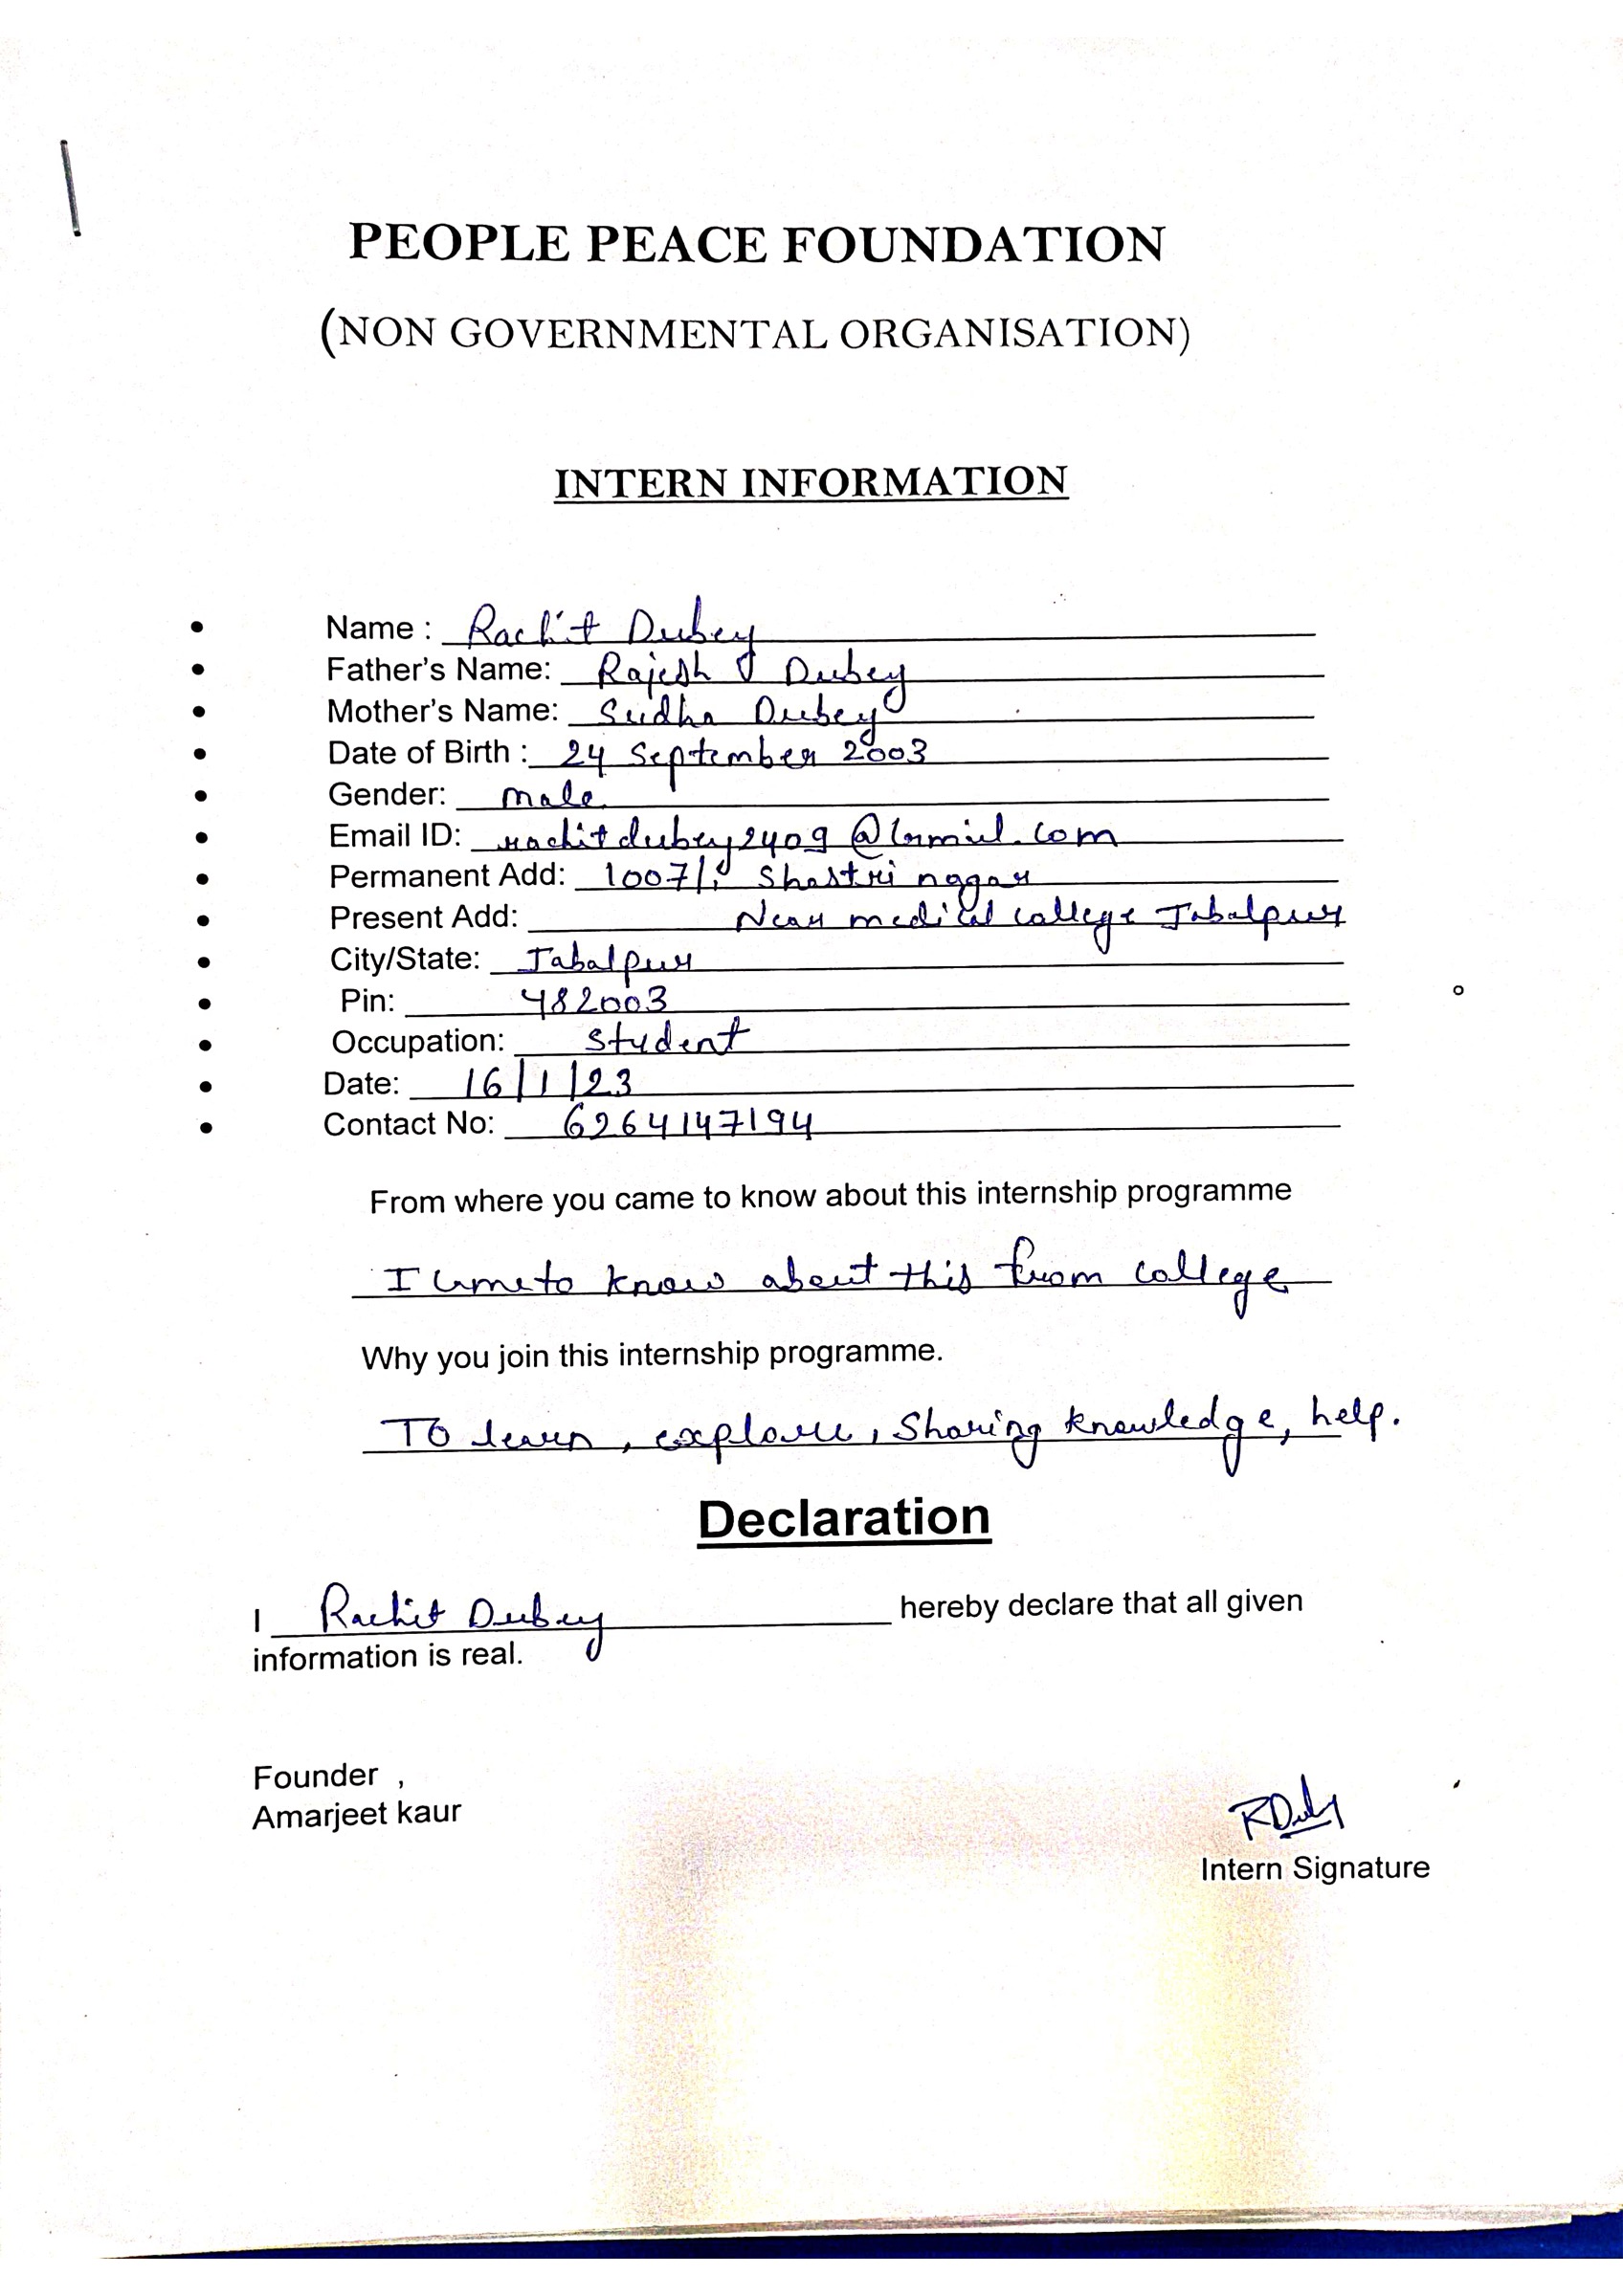 PEOPLE PEACE FOUNDATION
(NON GOVERNMENTAL ORGANISATION)
INTERN INFORMATION
• Name : Rachit Dubey
• Father's Name: Rajesh Dubey
• Mother's Name: Sudha Dubey
• Date of Birth : 24 September 2003
• Gender: male
• Email ID: rachitdubey2409@Gmail.com
• Permanent Add: 1007/ Shastri nagar
• Present Add: Near medical college Jabalpur
• City/State: Jabalpur
• Pin: 482003
• Occupation: Student
• Date: 16/1/23
• Contact No: 6264147194
From where you came to know about this internship programme
I came to know about this from college
Why you join this internship programme.
To learn, explore, Sharing knowledge, help.
Declaration
I Rachit Dubey hereby declare that all given
information is real.
Founder ,
Amarjeet kaur
RDuby
Intern Signature